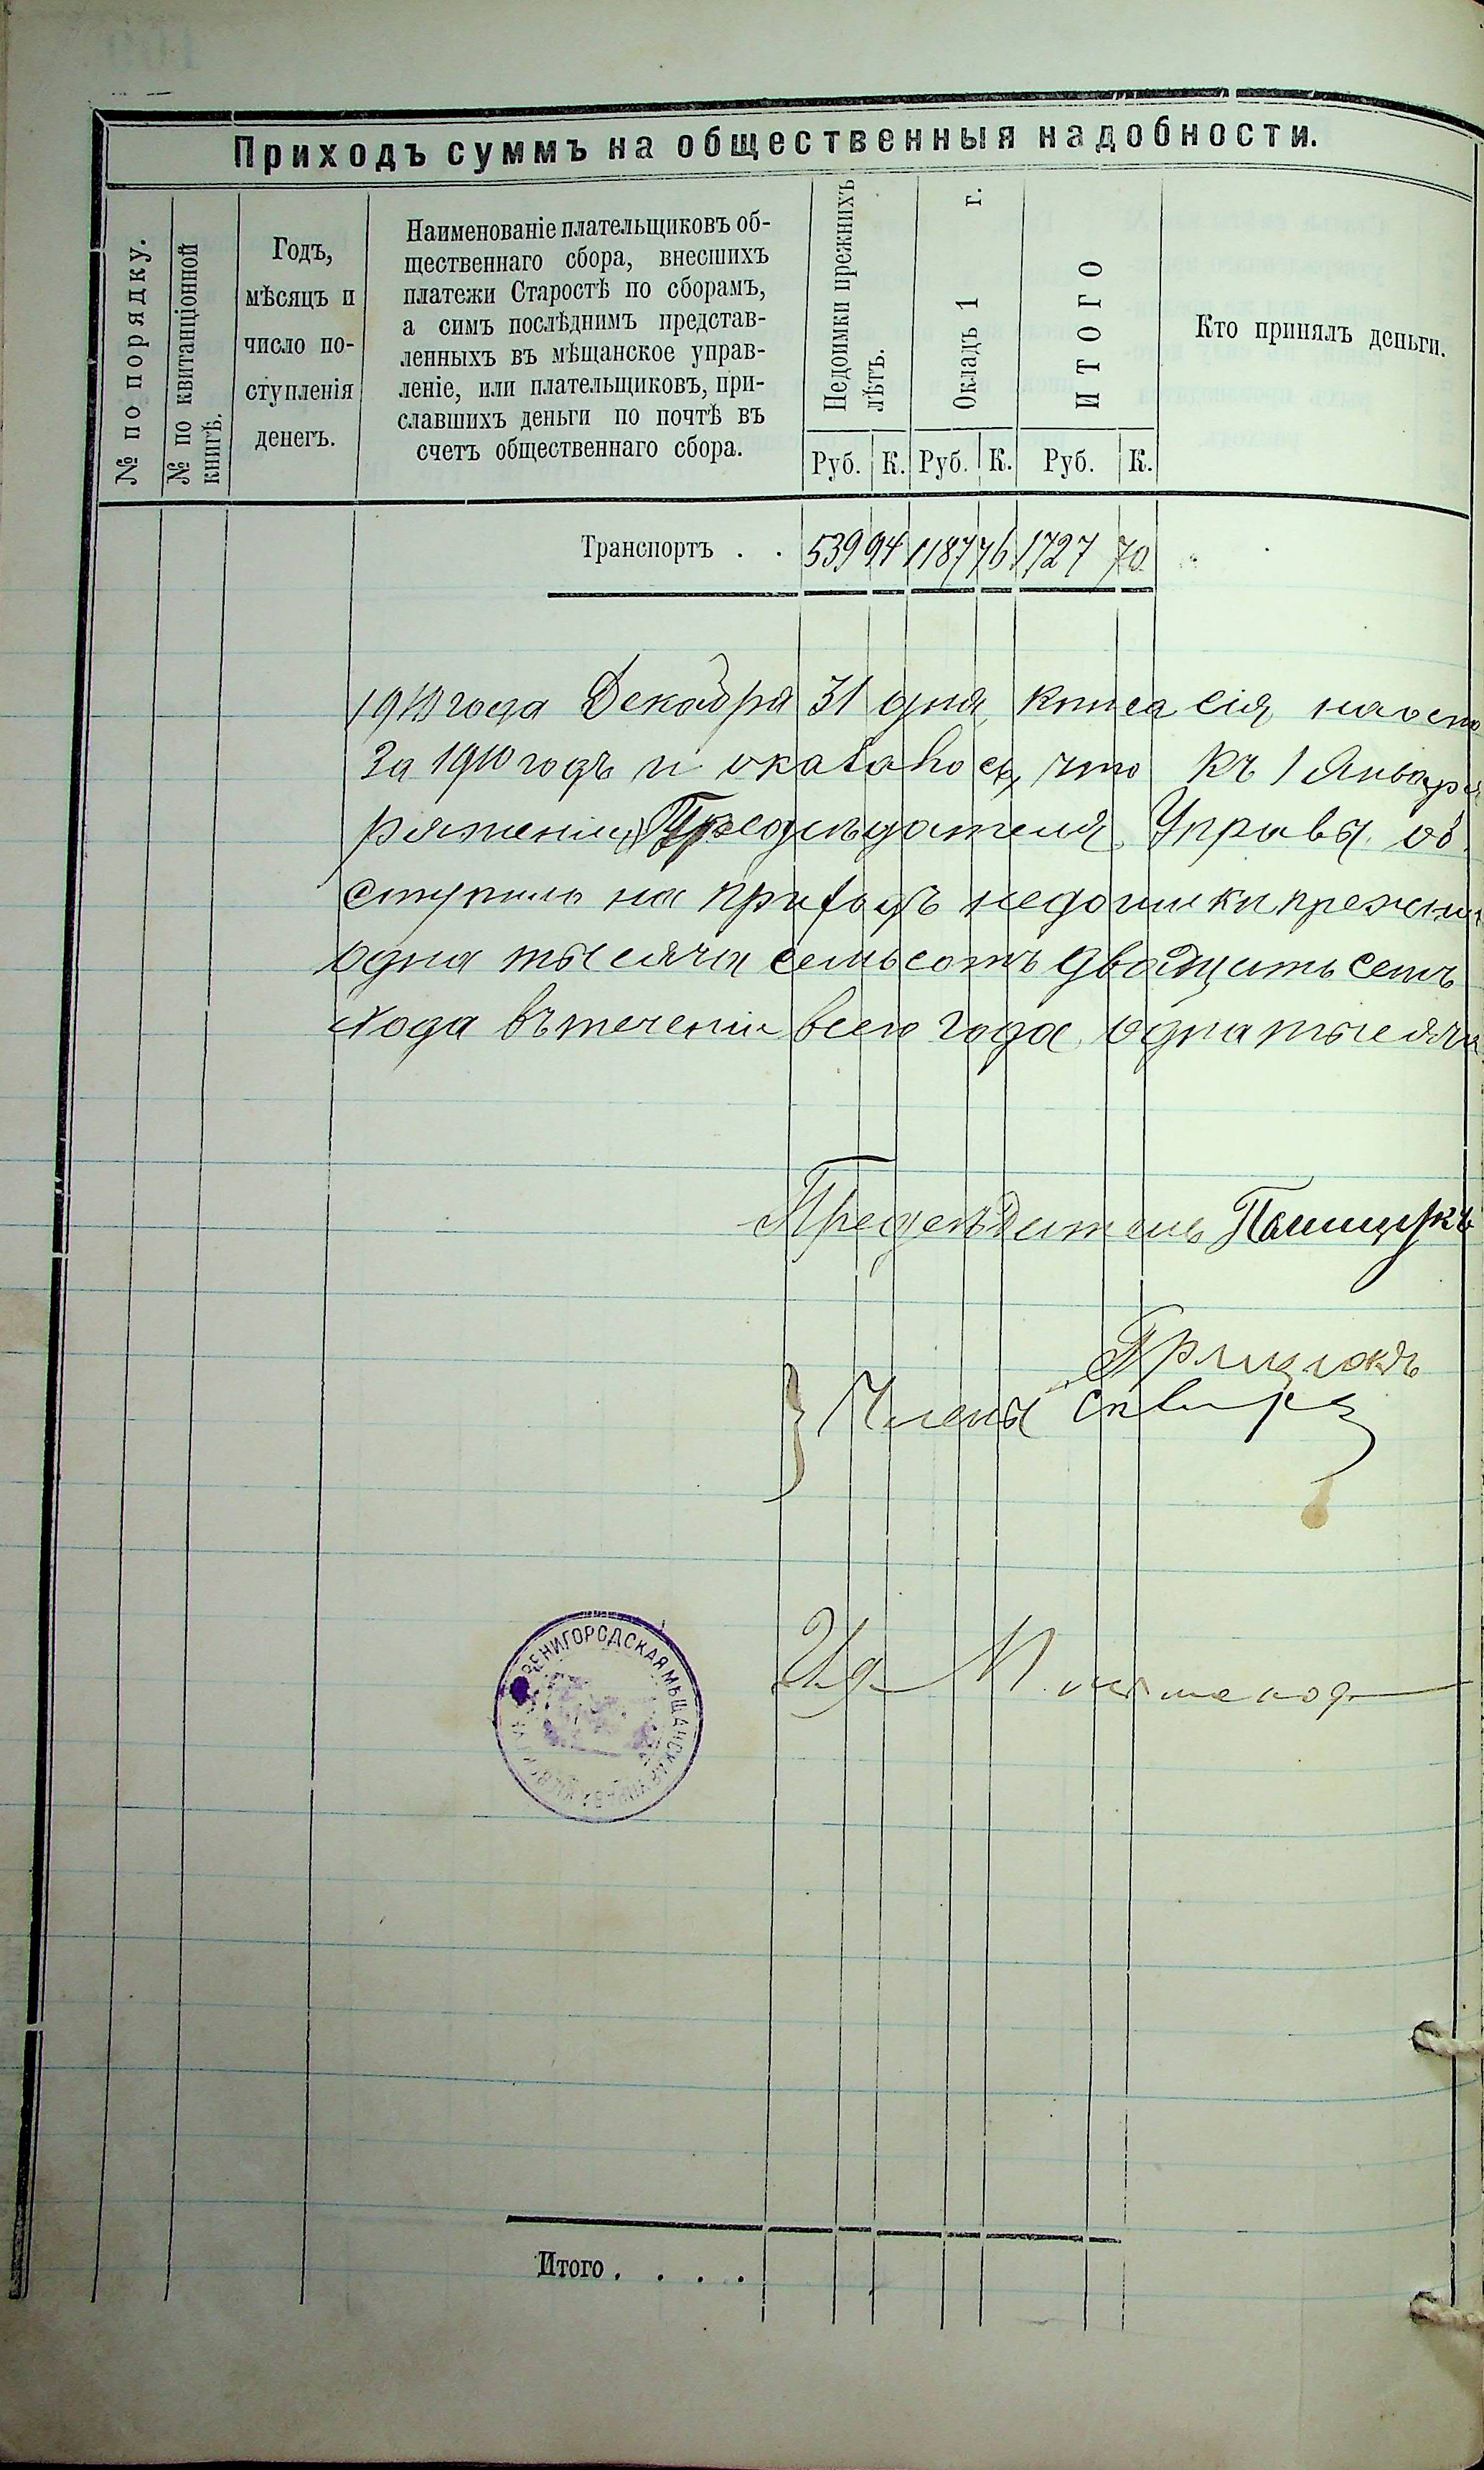 Приходъ суммъ на общественныя надобности.
№ по порядку.
№ по квитанціонной
книгѣ.
Годъ,
мѣсяцъ и
число по-
ступленія
денегъ.
Наименованіе плательщиковъ об-
щественнаго сбора, внесшихъ
платежи Старостѣ по сборамъ,
а симъ послѣднимъ представ-
ленныхъ въ мѣщанское управ-
леніе, или плательщиковъ, при-
славшихъ деньги по почтѣ въ
счетъ общественнаго сбора.
Недоимки прежнихъ
лѣтъ.
Окладъ 1 г.
ИТОГО
Кто принялъ деньги.
Руб. К. Руб. К. Руб. К.
Транспортъ . . 539 94 1187 76 1727 70
1910 года Декабря 31 дня, книга сія
За 1910 годъ и оказалось, что къ 1 Января
ряженіи Предсѣдателя Управы об
ступило на приходъ недоимки прежни
одна тысяча семьсотъ двадцать семь
хода въ теченіи всего года одна тысяча
Предсѣдатель
Члены
ЗВЕНИГОРОДСКАЯ МѢЩАНСКАЯ УПРАВА
Итого . . . .